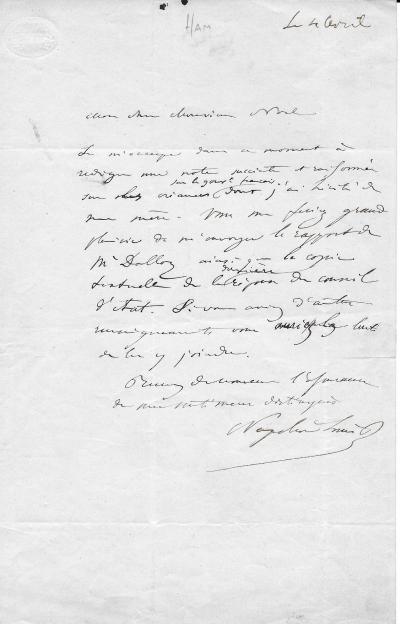 HAM
Le 4 Avril
Mon cher Monsieur Noel
Je m'occupe dans ce moment à
rédiger une note succinte et raisonnée
sur le gouvt français
sur les créances dont j'ai hérité de
ma mère. Vous me feriez grand
plaisir de m'envoyer le rapport de
Mr Dalloz ainsi que la copie
textuelle de la du conseil
d'état. Si vous avez d'autres
renseignements vous auriez la bonté
de les y joindre.
Recevez de nouveau l'assurance
de mes sentimens distingués
Napoléon Louis B